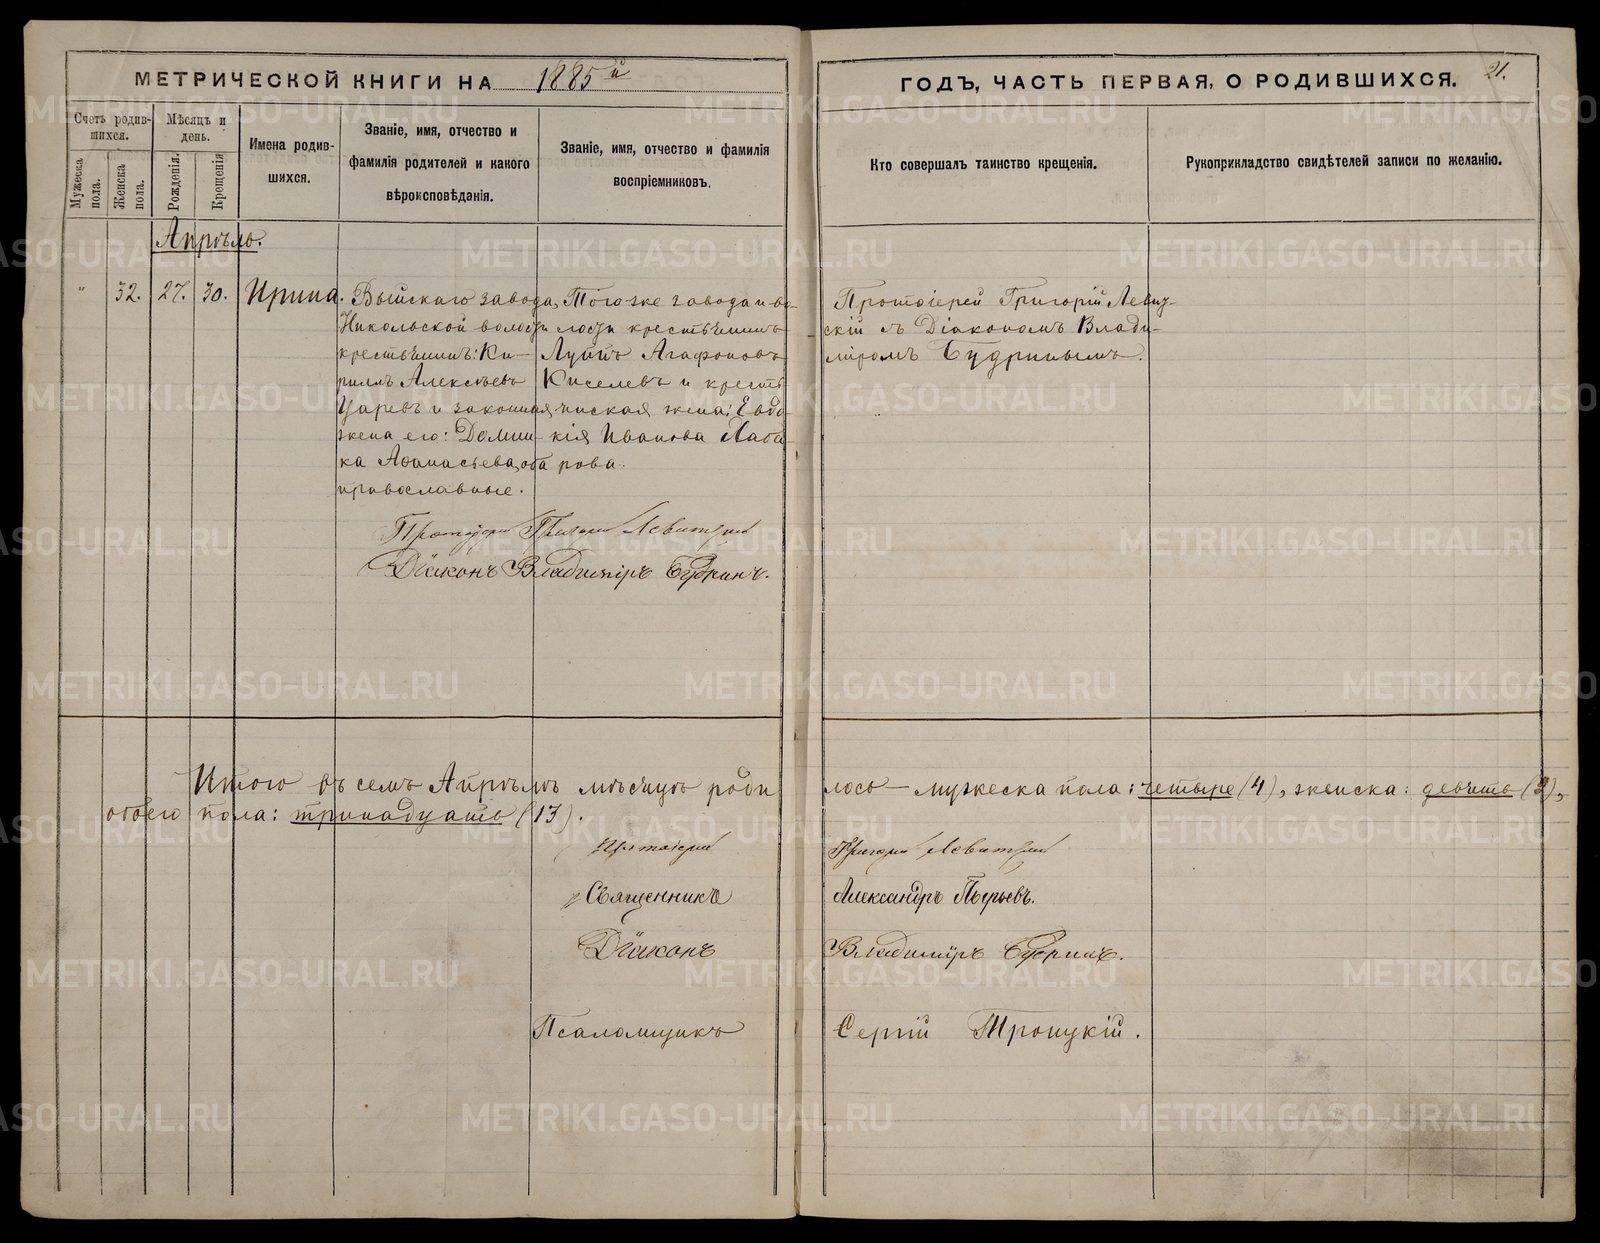 МЕТРИЧЕСКОЙ КНИГИ НА 1885й
ГОДЪ, ЧАСТЬ ПЕРВАЯ, О РОДИВШИХСЯ.
21.
Счетъ родив-
шихся.
Мужеска пола.
Женска пола.
Мѣсяцъ и
день.
Рожденія.
Крещенія
Имена родив-
шихся.
Званіе, имя, отчество и
фамилія родителей и какого
вѣроисповѣданія.
Званіе, имя, отчество и фамилія
воспріемниковъ.
Кто совершалъ таинство крещенія.
Рукоприкладство свидѣтелей записи по желанію.
Апрѣль.
" 32. 27. 30. Ирина.
Выйскаго завода,
Никольской волости
крестьянинъ: Ки-
риллъ Алексѣевъ
Царевъ и законная
жена его: Домни-
ка Аѳанасьева, оба
православные.
Того же завода и во-
лости крестьянинъ
Луппъ Агафоновъ
Киселевъ и кресть
янская жена: Евдо-
кія Иванова
рова.
Протоіерей Григорій Левит-
скій съ Діакономъ Влади-
міромъ Будринымъ.
Протоіерей Григорій Левитскій
Діаконъ Владиміръ Будринъ.
Итого въ семъ Апрѣлѣ мѣсяцѣ роди
лось — мужеска пола: четыре (4), женска: девять (9),
обоего пола: тринадцать (13).
Протоіерей Григорій Левитскій
Священникъ Александръ
Діаконъ Владиміръ Будринъ.
Псаломщикъ Сергій Троицкій.
METRIKI.GASO-URAL.RU